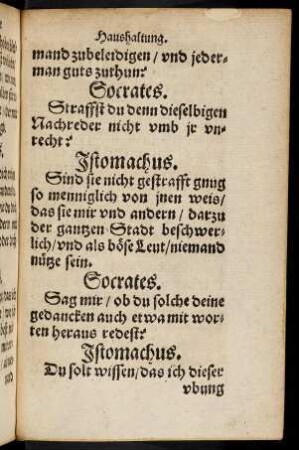 Haushaltung.
mand zubeleidigen / vnd jeder-
man guts zuthun?
Socrates.
Straffst du denn dieselbigen
Nachreder nicht vmb jr vn-
recht?
Istomachus.
Sind sie nicht gestrafft gnug
so menniglich von jnen weis /
das sie mir vnd andern / darzu
der gantzen Stadt beschwer-
lich / vnd als böse Leut / niemand
nütze sein.
Socrates.
Sag mir / ob du solche deine
gedancken auch etwa mit wor-
ten heraus redest?
Istomachus.
Du solt wissen / das ich dieser
vbung